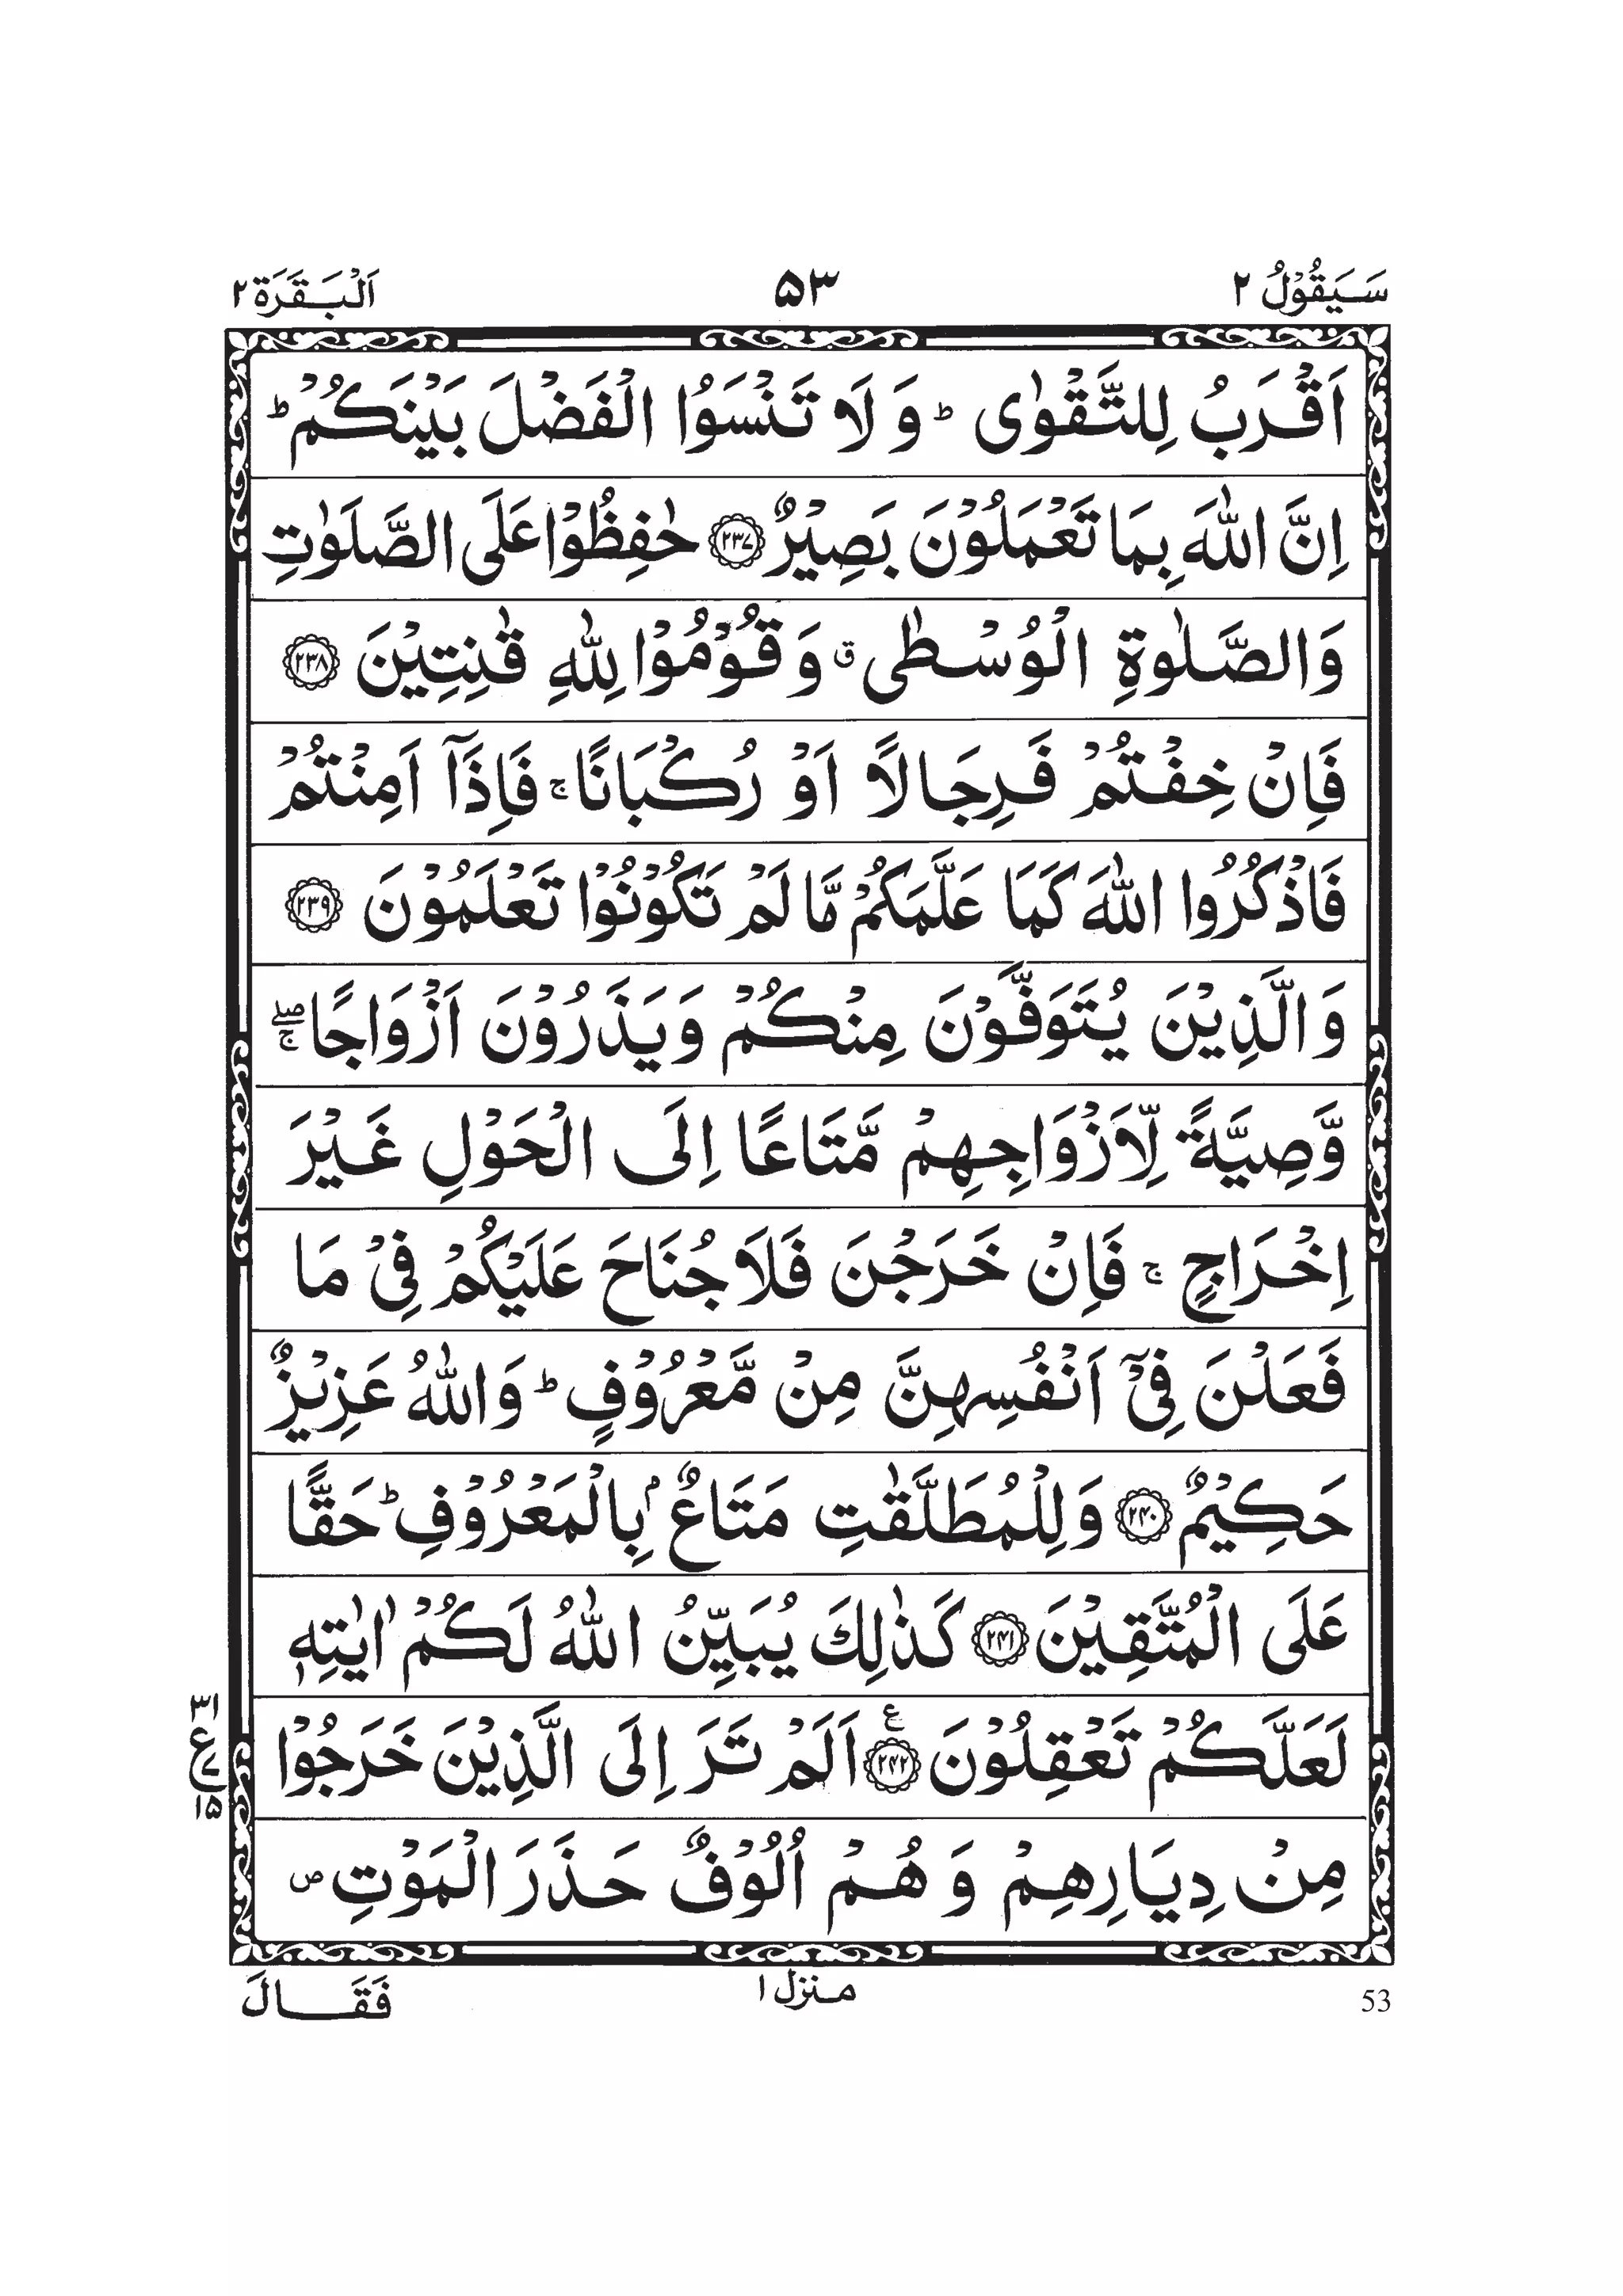 سَيَقُوْلُ ٢
٥٣
اَلْبَقَرَة ٢
اَقْرَبُ لِلتَّقْوٰى ؕ وَ لَا تَنْسَوُا الْفَضْلَ بَيْنَكُمْ ؕ
اِنَّ اللّٰهَ بِمَا تَعْمَلُوْنَ بَصِيْرٌ ﴿٢٣٧﴾ حٰفِظُوْا عَلَى الصَّلَوٰتِ
وَالصَّلٰوةِ الْوُسْطٰى ۗ وَقُوْمُوْا لِلّٰهِ قٰنِتِيْنَ ﴿٢٣٨﴾
فَاِنْ خِفْتُمْ فَرِجَالًا اَوْ رُكْبَانًا ۚ فَاِذَاۤ اَمِنْتُمْ
فَاذْكُرُوا اللّٰهَ كَمَا عَلَّمَكُمْ مَّا لَمْ تَكُوْنُوْا تَعْلَمُوْنَ ﴿٢٣٩﴾
وَالَّذِيْنَ يُتَوَفَّوْنَ مِنْكُمْ وَيَذَرُوْنَ اَزْوَاجًا ۖۚ
وَّصِيَّةً لِّاَزْوَاجِهِمْ مَّتَاعًا اِلَى الْحَوْلِ غَيْرَ
اِخْرَاجٍ ۚ فَاِنْ خَرَجْنَ فَلَا جُنَاحَ عَلَيْكُمْ فِيْ مَا
فَعَلْنَ فِيْۤ اَنْفُسِهِنَّ مِنْ مَّعْرُوْفٍ ؕ وَاللّٰهُ عَزِيْزٌ
حَكِيْمٌ ﴿٢٤٠﴾ وَلِلْمُطَلَّقٰتِ مَتَاعٌۢ بِالْمَعْرُوْفِ ؕ حَقًّا
عَلَى الْمُتَّقِيْنَ ﴿٢٤١﴾ كَذٰلِكَ يُبَيِّنُ اللّٰهُ لَكُمْ اٰيٰتِهٖ
لَعَلَّكُمْ تَعْقِلُوْنَ ﴿٢٤٢﴾ ع اَلَمْ تَرَ اِلَى الَّذِيْنَ خَرَجُوْا
٣١
ع
١٥
مِنْ دِيَارِهِمْ وَ هُمْ اُلُوْفٌ حَذَرَ الْمَوْتِ ص
53
منزل ١
فَقَالَ